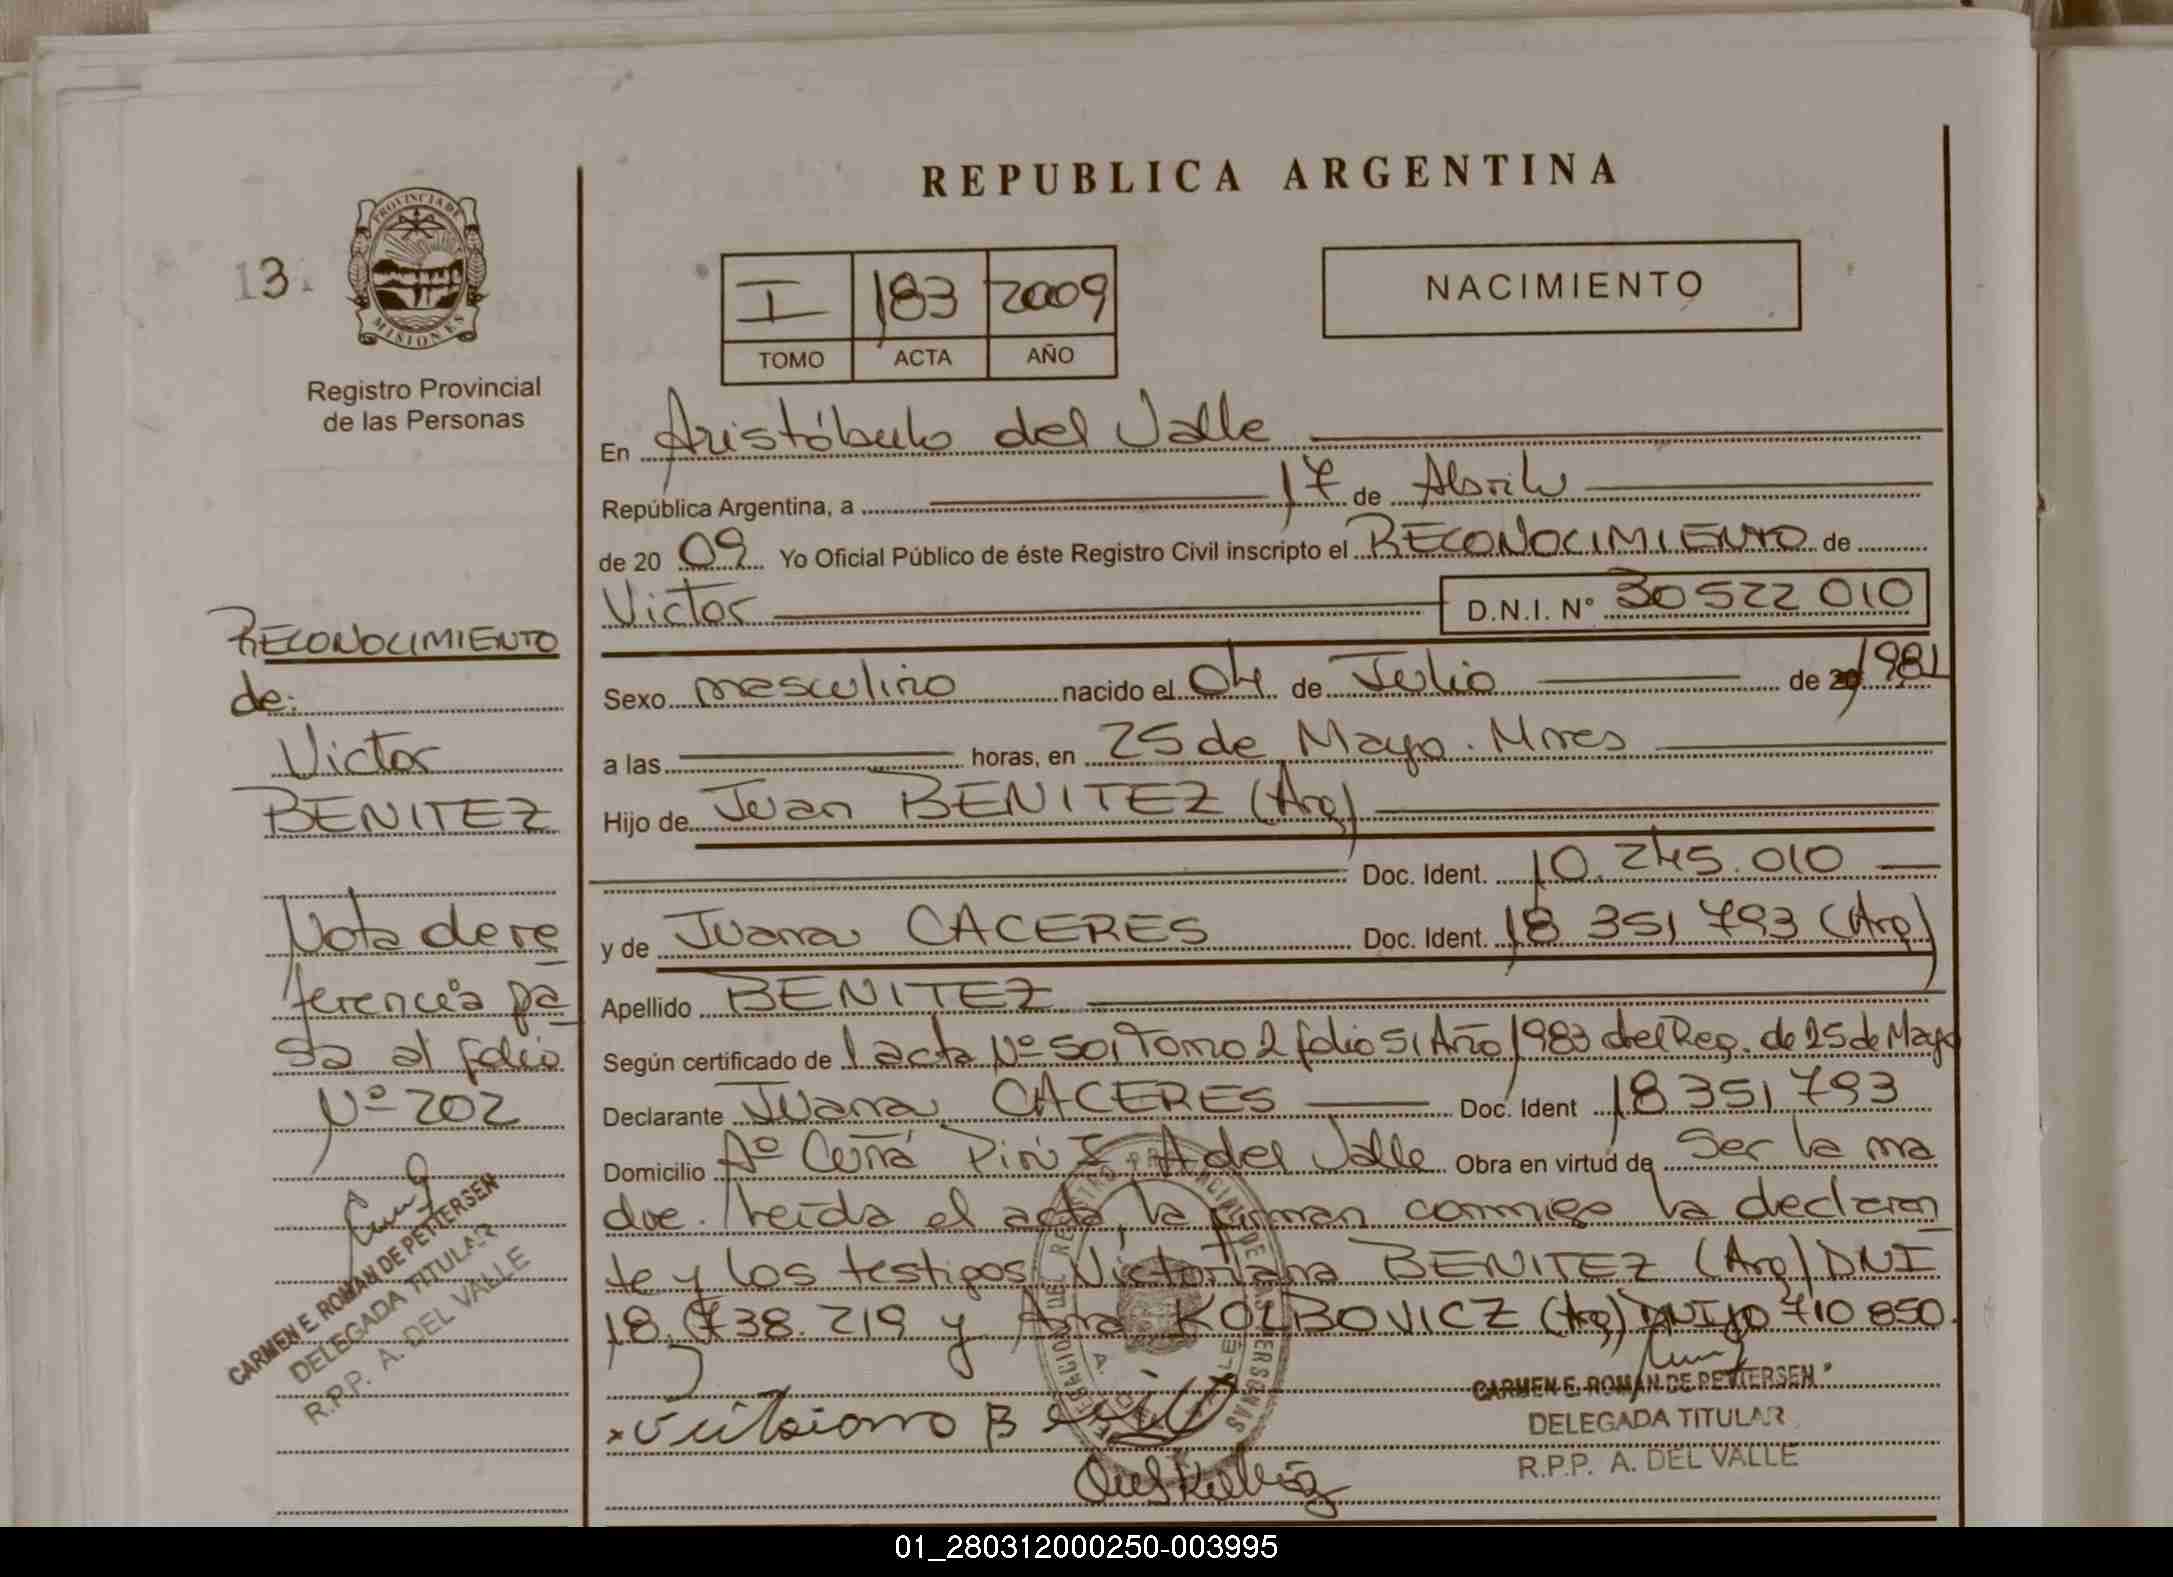 REPUBLICA ARGENTINA
PROVINCIA DE
MISIONES
13
Registro Provincial
de las Personas
I 183 2009
TOMO ACTA AÑO
NACIMIENTO
En Aristóbulo del Valle
República Argentina, a 17 de Abril
de 20 09 Yo Oficial Público de éste Registro Civil inscripto el RECONOCIMIENTO de
Victor D.N.I. N° 30522010
Sexo masculino nacido el 04 de Julio de 20 1981
a las horas, en 25 de Mayo. Mnes
Hijo de Juan BENITEZ (Arg)
Doc. Ident. 10.245.010
y de Juana CACERES Doc. Ident. 18 351 793 (Arg)
Apellido BENITEZ
Según certificado de acta Nº 501 Tomo 2 folio 51 Año 1983 del Reg. de 25 de Mayo
Declarante Juana CACERES Doc. Ident 18351793
Domicilio Aº Cuñá Pirú I A del Valle Obra en virtud de Ser la ma
dre. Leída el acta, la firman conmigo la declaran
te y los testigos Victoriana BENITEZ (Arg) DNI
18.738.219 y Ana KOLBOVICZ (Arg) DNI 10 710 850
CARMEN E. ROMAN DE PETTERSEN
DELEGADA TITULAR
R.P.P. A. DEL VALLE
RECONOCIMIENTO
de:
Victor
BENITEZ
Nota de re
ferencia pa
sa al folio
Nº 202
CARMEN E. ROMAN DE PETTERSEN
DELEGADA TITULAR
R.P.P. A. DEL VALLE
01_280312000250-003995